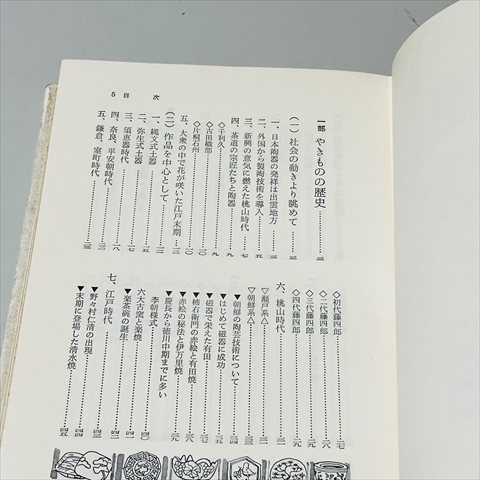 5 目 次
一部 やきものの歴史……三
(一) 社会の動きより眺めて……三
一、日本陶器の発祥は出雲地方……三
二、外国から製陶技術を導入……五
三、新興の意気に燃えた桃山時代……七
四、茶道の宗匠たちと陶器……九
◇千利久……九
◇古田織部……一〇
◇片桐石州……一〇
五、大衆の中で花が咲いた江戸末期
(二) 作品を中心として
一、縄文式土器
二、弥生式土器
三、須恵器時代
四、奈良、平安朝時代……一八
五、鎌倉、室町時代
◇初代藤四郎……二七
◇二代藤四郎
◇三代藤四郎
◇四代藤四郎
六、桃山時代
▽瀬戸系△
▽朝鮮系△
▼朝鮮の陶芸技術について
▼はじめて磁器に成功
▼磁器で栄えた有田
▼柿右衛門の赤絵と有田焼
▼赤絵の秘法と伊万里焼
▼慶長から徳川中期までに多い
李朝様式……三九
六大古窯と楽焼……四〇
▼楽茶碗の誕生……四二
七、江戸時代
▼野々村仁清の出現
▼末期に登場した清水焼……四五